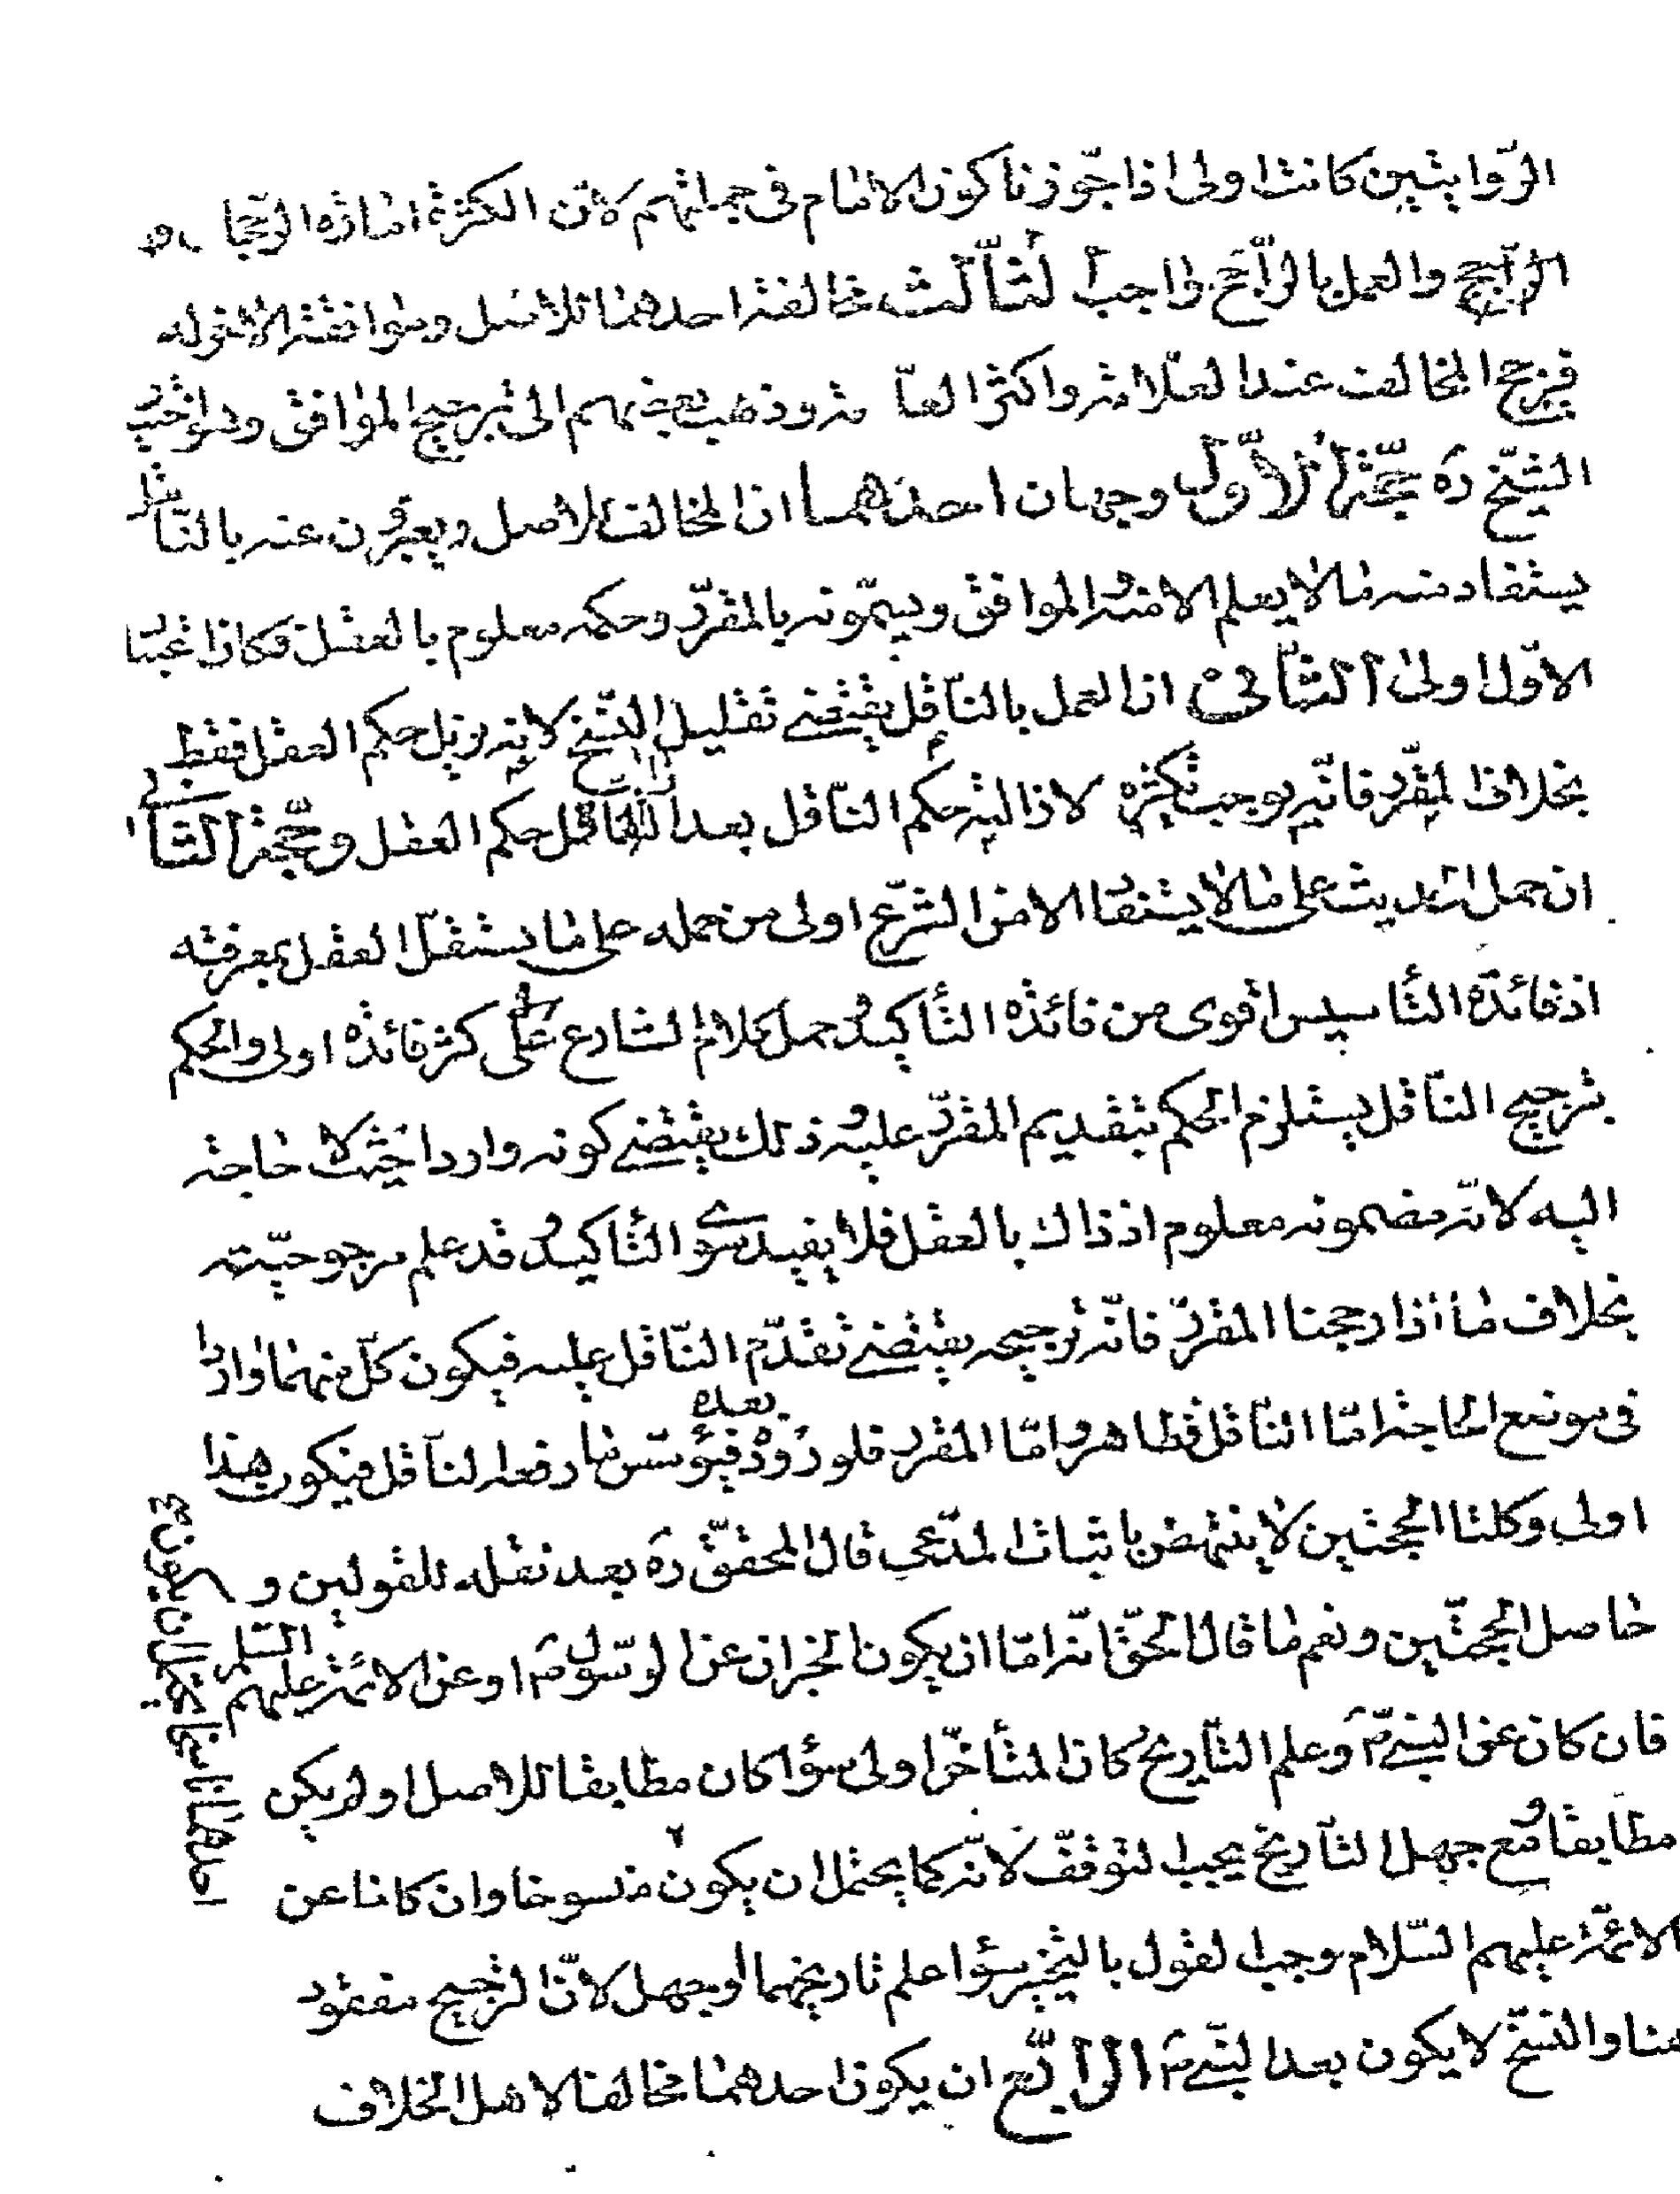 الروايتين كانتا اولى اذا جوزنا كون الامام فى جملتهم لانّ الكثرة امارة الرجحان و
الراجح والعمل بالراجح واجب الثالث مخالفة احدهما للاصل وموافقة الاخر له
فيرجح المخالف عند العلامة واكثر العامة وذهب بعضهم الى ترجيح الموافق وهو اختيار
الشيخ ره حجّة الاوّل وجهان احدهما ان المخالف للاصل ويعبّرون عنه بالنّاقل
يستفاد منه ما لا يعلم الا منه والموافق ويسمّونه بالمقرّر وحكمه معلوم بالعقل فكان اعتبار
الاوّل اولى الثّانى ان العمل بالنّاقل يقتضى تقليل النّسخ لانه يزيل حكم العقل فقط
بخلاف المقرّر فانّه يوجب تكثيره لازالته حكم النّاقل بعد ازالة النّاقل حكم العقل وحجّة الثّانى
ان حمل الحديث على ما لا يستفاد الا من الشّرع اولى من حمله على ما يستقلّ العقل بمعرفته
اذ فائدة التّأسيس اقوى من فائدة التّأكيد وحمل كلام الشارع على اكثر فائدة اولى والحكم
بترجيح النّاقل يستلزم الحكم بتقديم المقرّر عليه وذلك يقتضى كونه واردا حيث لا حاجة
اليه لانّه مضمونه معلوم اذ ذاك بالعقل فلا يفيد سوى التّأكيد وقد علم مرجوحيّته
بخلاف ما اذا رجحنا المقرّر فانّه ترجيحه يقتضى تقدّم النّاقل عليه فيكون كلّ منهما واردا
فى موضع الحاجة امّا النّاقل فظاهر وامّا المقرر فلوروده بعده فيؤسّس ما رفعه النّاقل فيكون هذا
اولى وكلتا الحجتين لا ينتهض باثبات المدّعى قال المحقّق ره بعد نقله للقولين و
حاصل الحجتّين ونعم ما قال الحقّ انّه امّا ان يكون الخبران عن الرّسول ص او عن الائمّة عليهم السّلم
فان كان عن النبىّ ص وعلم التّاريخ كان المتأخّر اولى سواء كان مطابقا للاصل او لم يكن
مطابقا ومع جهل التّاريخ يجب التوقّف لانّه كما يحتمل ان يكون منسوخا وان كانا عن
احدهما ناسخا يحتمل ان يكون ع
الائمّة عليهم السّلام وجب القول بالتخيير سواء علم تاريخهما او جهل لانّ الترجيح مفقود
هنا والنسخ لا يكون بعد النّبىّ ص الرّابع ان يكون احدهما مخالفا لاهل الخلاف